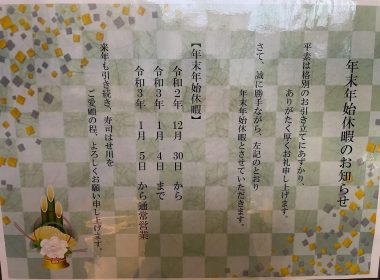 年末年始休暇のお知らせ
平素は格別のお引き立てにあずかり、
ありがたく厚くお礼申し上げます。
さて、誠に勝手ながら、左記のとおり
年末年始休暇とさせていただきます。
【年末年始休暇】
令和2年 12月 30日 から
令和3年 1月 4日 まで
令和3年 1月 5日 から通常営業
来年も引き続き、寿司はせ川を
ご愛顧の程、よろしくお願い申し上げます。